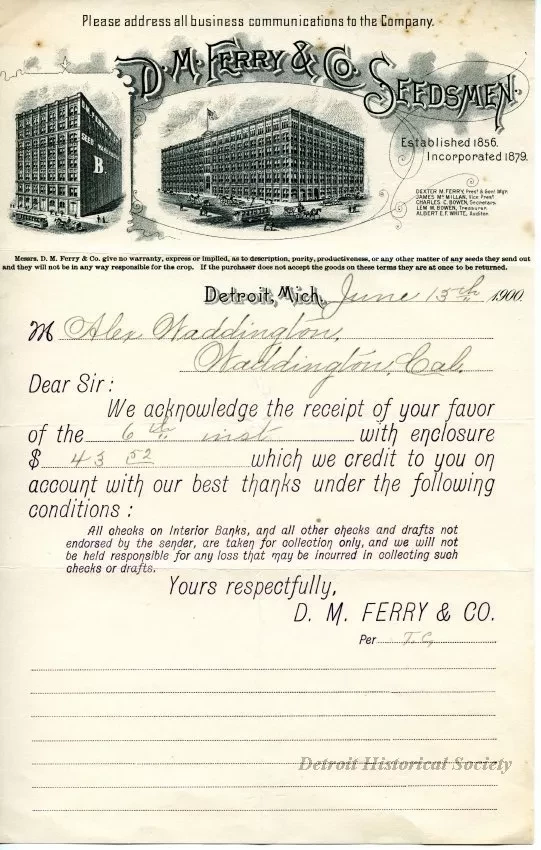 Please address all business communications to the Company.
D. M. FERRY & CO. SEEDSMEN.
B
Established 1856.
Incorporated 1879.
DEXTER M. FERRY, Prest & Genl Mgr.
JAMES McMILLAN, Vice Prest.
CHARLES C. BOWEN, Secretary.
LEM W. BOWEN, Treasurer.
ALBERT E. F. WHITE, Auditor.
Messrs. D. M. Ferry & Co. give no warranty, express or implied, as to description, purity, productiveness, or any other matter of any seeds they send out
and they will not be in any way responsible for the crop. If the purchaser does not accept the goods on these terms they are at once to be returned.
Detroit, Mich. June 13th 1900.
M Alex Waddington,
Waddington, Cal.
Dear Sir:
We acknowledge the receipt of your favor
of the 6th inst with enclosure
$ 43 52 which we credit to you on
account with our best thanks under the following
conditions:
All checks on Interior Banks, and all other checks and drafts not
endorsed by the sender, are taken for collection only, and we will not
be held responsible for any loss that may be incurred in collecting such
checks or drafts.
Yours respectfully,
D. M. FERRY & CO.
Per
Detroit Historical Society